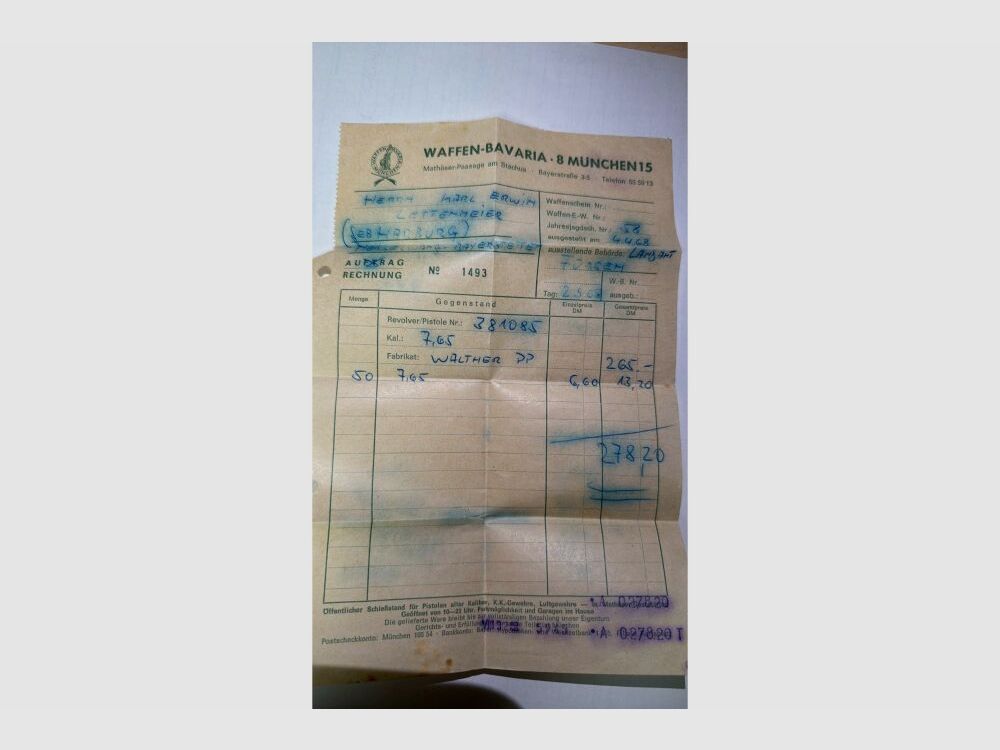 WAFFEN-BAVARIA · 8 MÜNCHEN 15
Mathäser-Passage am Stachus · Bayerstraße 3-5 · Telefon 55 59 13
HERRN KARL ERWIN
Waffenschein Nr.:
Waffen-E.-W. Nr.:
Jahresjagdsch. Nr.: 58
ausgestellt am 4.4.68
ausstellende Behörde: LANDRAT
FÜSSEN
AUFTRAG
RECHNUNG Nº 1493
W.-B. Nr.
Tag:
ausgeb.:
Menge Gegenstand Einzelpreis DM Gesamtpreis DM
Revolver/Pistole Nr.: 381085
Kal.: 7,65
Fabrikat: WALTHER PP 265.-
50 7,65 6,60 13,20
278,20
Öffentlicher Schießstand für Pistolen aller Kaliber, K.K.-Gewehre, Luftgewehre —
Geöffnet von 10—23 Uhr, Parkmöglichkeit und Garagen im Hause
Die gelieferte Ware bleibt bis zur vollständigen Bezahlung unser Eigentum
Gerichts- und
Postscheckkonto: München 160 54 · Bankkonto:
A 0278.20
A 0278.20 T